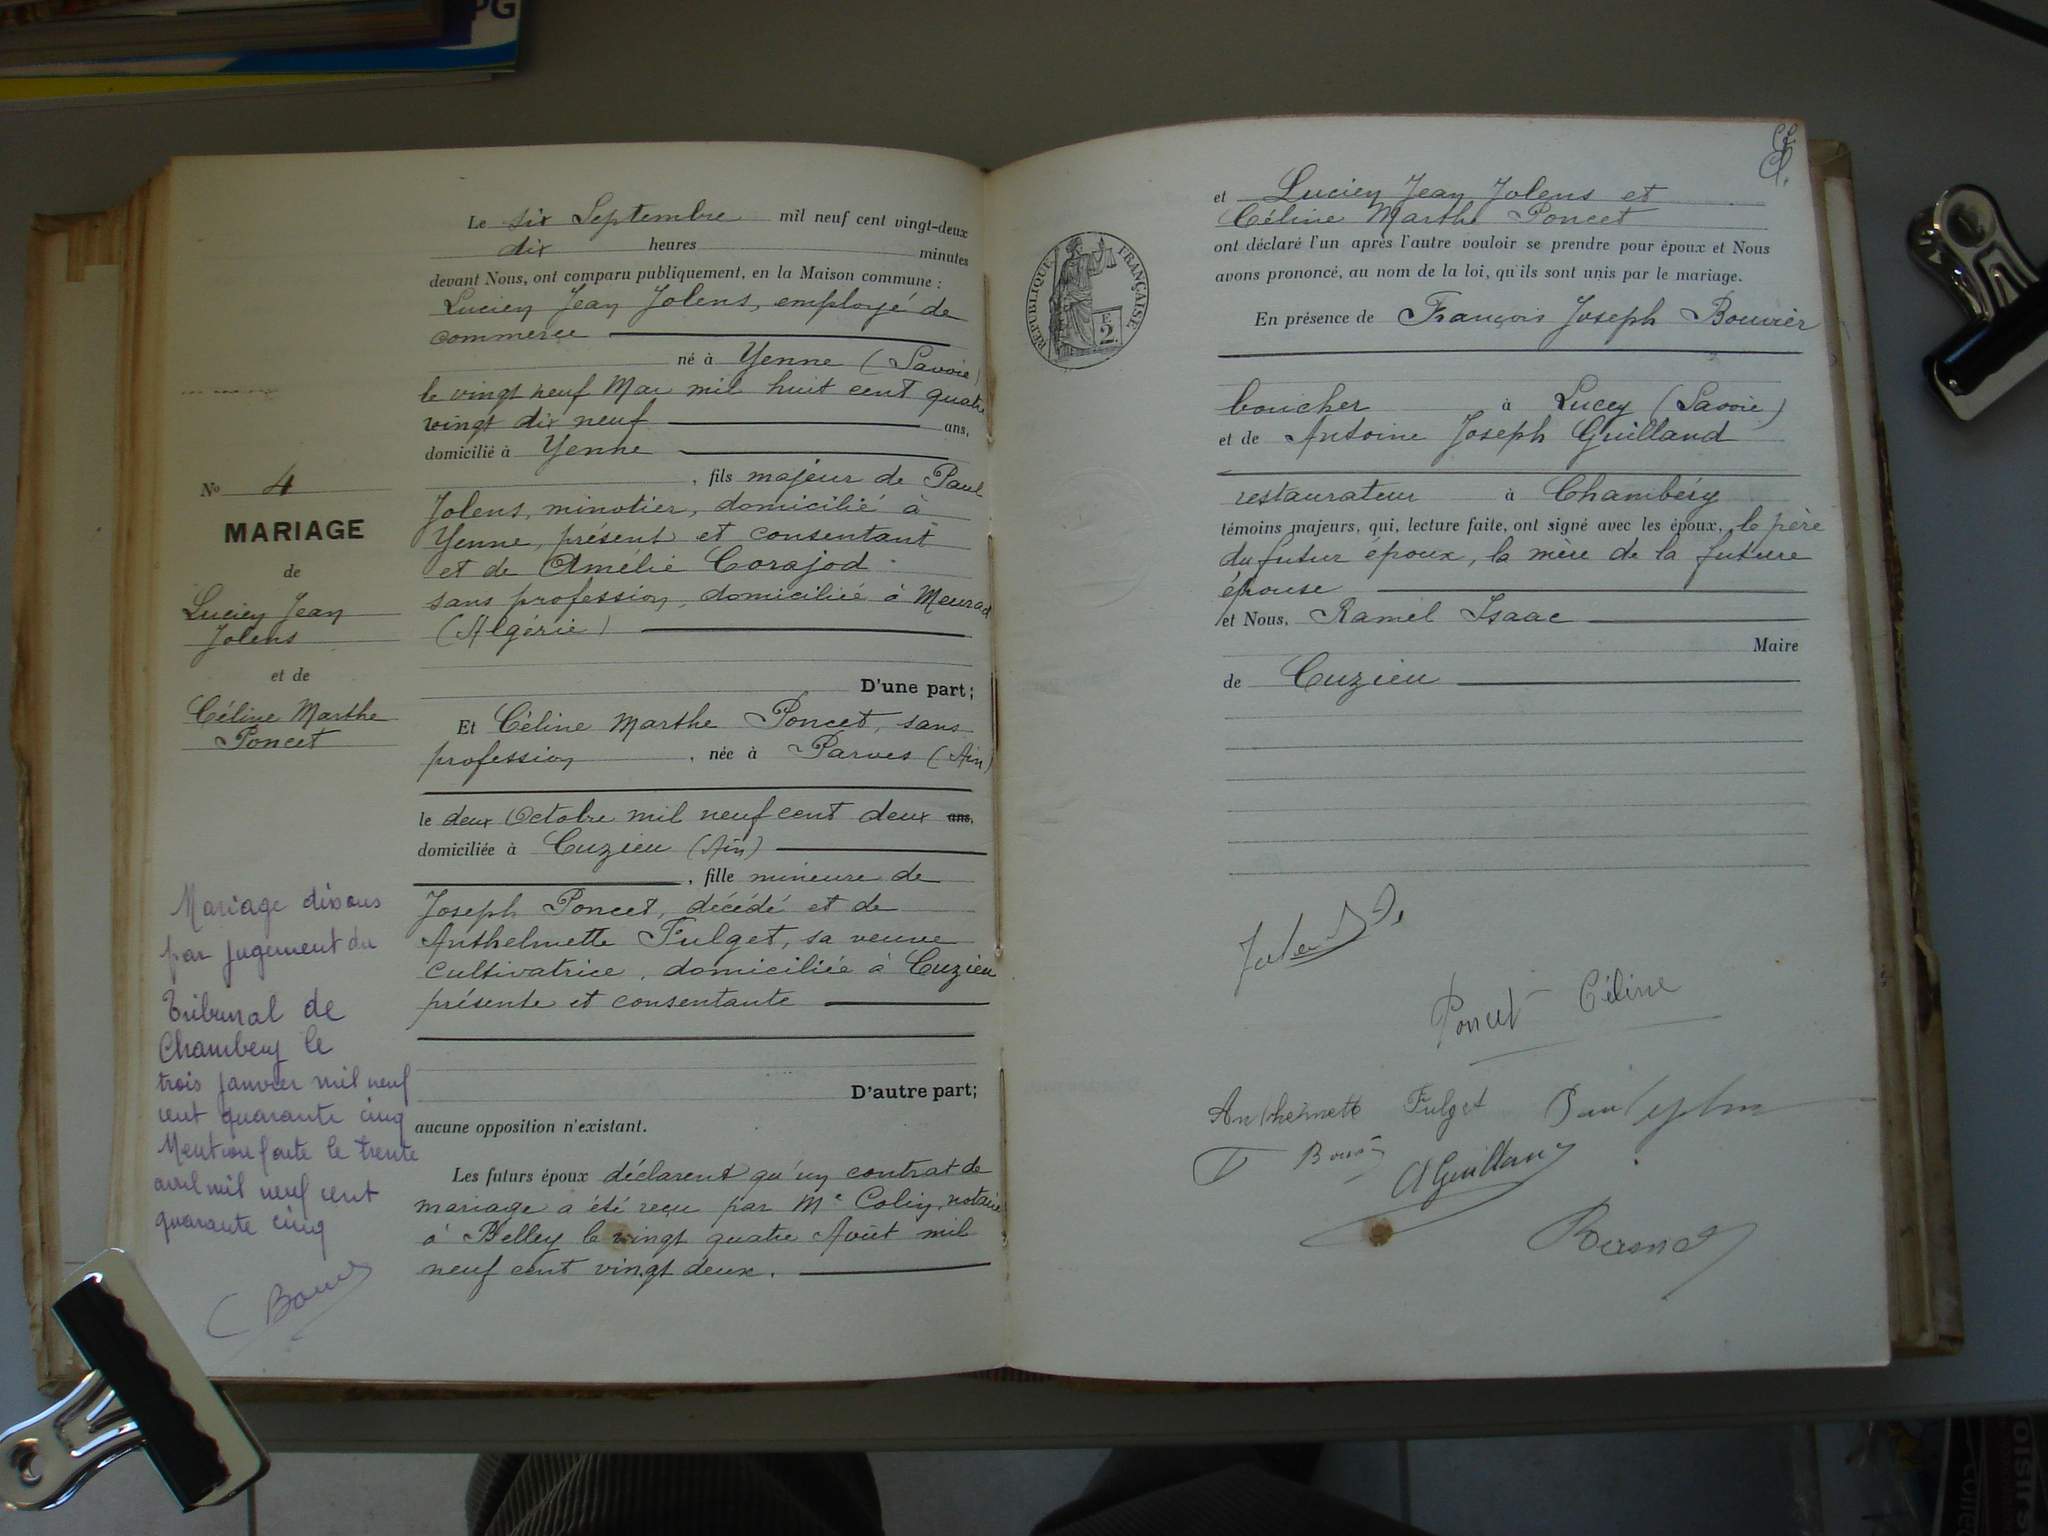 PG
Le six Septembre mil neuf cent vingt-deux
dix heures minutes
devant Nous, ont comparu publiquement, en la Maison commune :
Lucien Jean Jolens, employé de
commerce
né à Yenne (Savoie)
le vingt neuf Mai mil huit cent quatre
vingt dix neuf ans,
domicilié à Yenne
, fils majeur de Paul
Jolens, minotier, domicilié à
Yenne, présent et consentant
et de Amélie Corajod
sans profession, domiciliée à Meurad
(Algérie)
D'une part;
Et Céline Marthe Poncet, sans
profession, née à Parves (Ain)
le deux Octobre mil neuf cent deux ans,
domiciliée à Cuzieu (Ain)
, fille mineure de
Joseph Poncet, décédé et de
Anthelmette Fulget, sa veuve
cultivatrice, domiciliée à Cuzieu
présente et consentante
D'autre part;
aucune opposition n'existant.
Les futurs époux déclarent qu'un contrat de
mariage a été reçu par Me Colin, notaire
à Belley le vingt quatre Août mil
neuf cent vingt deux.
No 4
MARIAGE
de
Lucien Jean
Jolens
et de
Céline Marthe
Poncet
Mariage dissous
par jugement du
Tribunal de
Chambery le
trois janvier mil neuf
cent quarante cinq
Mention faite le trente
avril mil neuf cent
quarante cinq
RÉPUBLIQUE FRANÇAISE
E
2.
et Lucien Jean Jolens et
Céline Marthe Poncet
ont déclaré l'un après l'autre vouloir se prendre pour époux et Nous
avons prononcé, au nom de la loi, qu'ils sont unis par le mariage.
En présence de François Joseph Bouvier
boucher à Lucey (Savoie)
et de Antoine Joseph Guilland
restaurateur à Chambéry
témoins majeurs, qui, lecture faite, ont signé avec les époux, le père
du futur époux, la mère de la future
épouse
et Nous, Ramel Isaac
Maire
de Cuzieu
Poncet Céline
Anthelmette Fulget
A Guilland